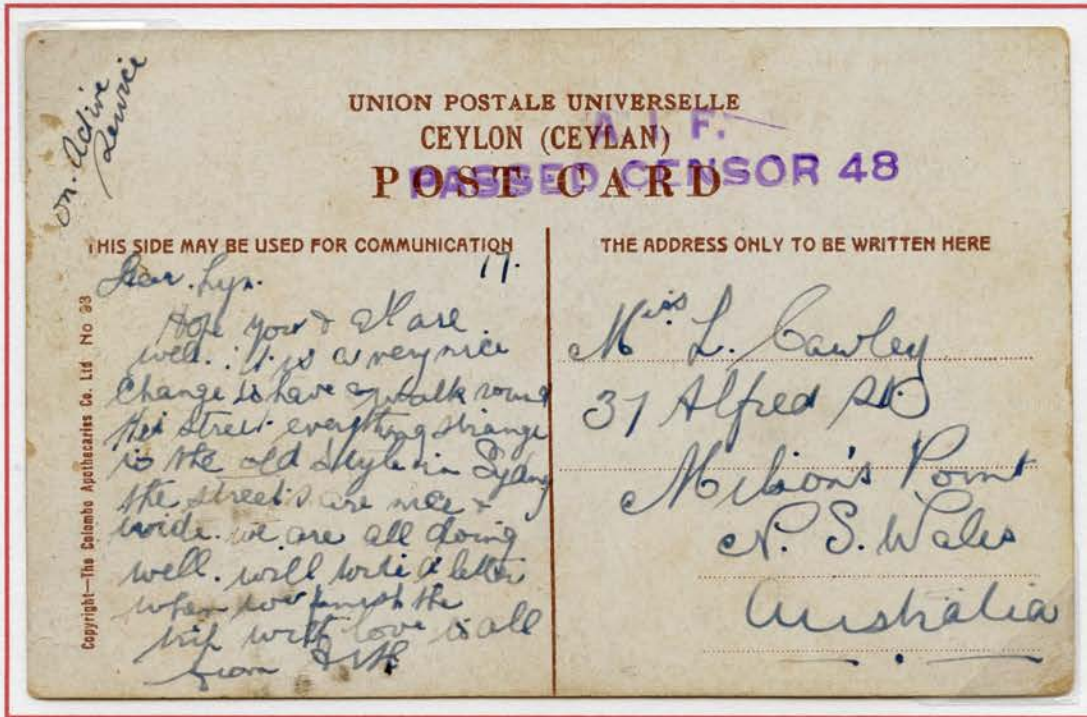 on. Active
Service
UNION POSTALE UNIVERSELLE
CEYLON (CEYLAN)
POST CARD
A. I. F.
PASSED CENSOR 48
THIS SIDE MAY BE USED FOR COMMUNICATION
THE ADDRESS ONLY TO BE WRITTEN HERE
Copyright—The Colombo Apothecaries Co. Ltd No 93
17.
Dear. Lyn.
Hope you & all are
well. it is a very nice
change to have a walk round
the street. everything strange
to the old style in Sydney
the streets are nice &
wide. we are all doing
well. will write a letter
when we finish the
trip with love to all
from
Miss L. Cawley
37 Alfred St
Milson's Point
N. S. Wales
Australia